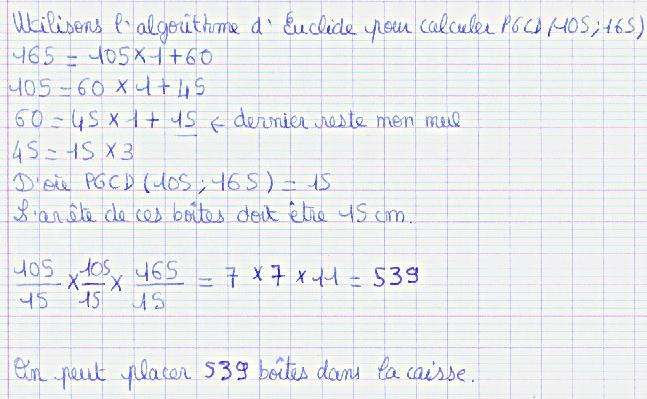 Utilisons l'algorithme d'Euclide pour calculer PGCD (105 ; 165)
165 = 105 × 1 + 60
105 = 60 × 1 + 45
60 = 45 × 1 + 15 ← dernier reste non nul
45 = 15 × 3
D'où PGCD (105 ; 165) = 15
L'arête de ces boîtes doit être 15 cm.
105/15 × 105/15 × 165/15 = 7 × 7 × 11 = 539
On peut placer 539 boîtes dans la caisse.